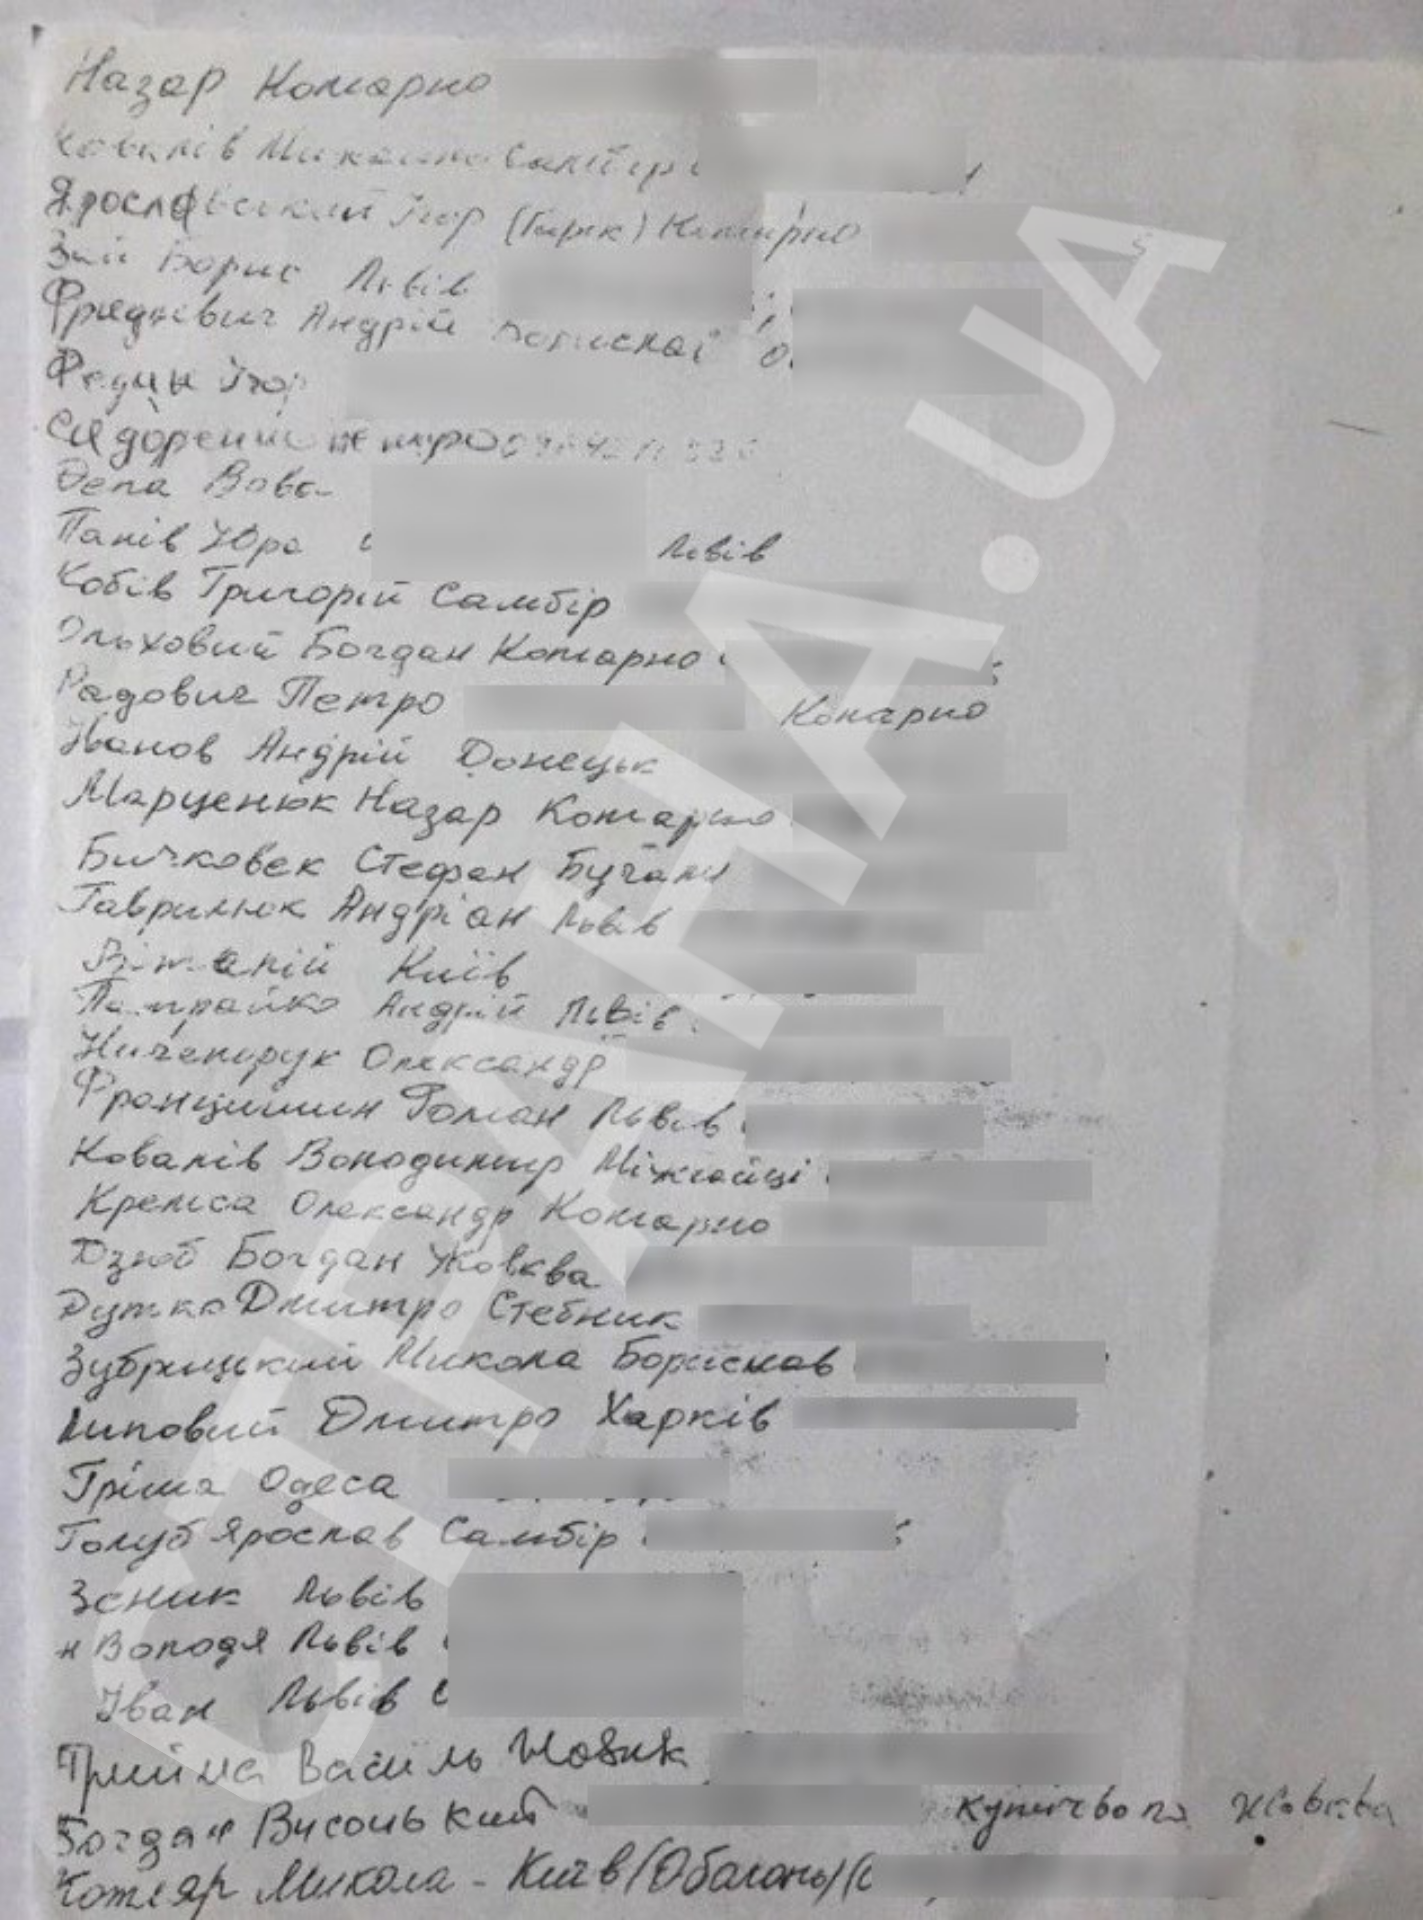 Назар Комарно
Ковалів Михайло Самбір
Ярославський Ігор (Гирик) Комарно
Зай Борис Львів
Фрядкевич Андрій Борислав
Федин Ігор
Сидоренко Петро
Депа Вова
Папів Юра Львів
Кобів Григорій Самбір
Ольховий Богдан Комарно
Радович Петро Комарно
Іванов Андрій Донецьк
Марценюк Назар Комарно
Бичковек Стефан Бучали
Гаврилюк Андріан Львів
Віталій Київ
Патрайко Андрій Львів
Ничепорук Олександр
Францишин Роман Львів
Ковалів Володимир
Кремса Олександр Комарно
Дзюб Богдан Жовква
Дутка Дмитро Стебник
Зубрицький Микола Борислав
Липовий Дмитро Харків
Гріша Одеса
Голуб Ярослав Самбір
Зеник Львів
Володя Львів
Іван Львів
Василь
Богдан Висоцький Жовква
Микола - Київ (Оболонь)
СТРАНА.UA